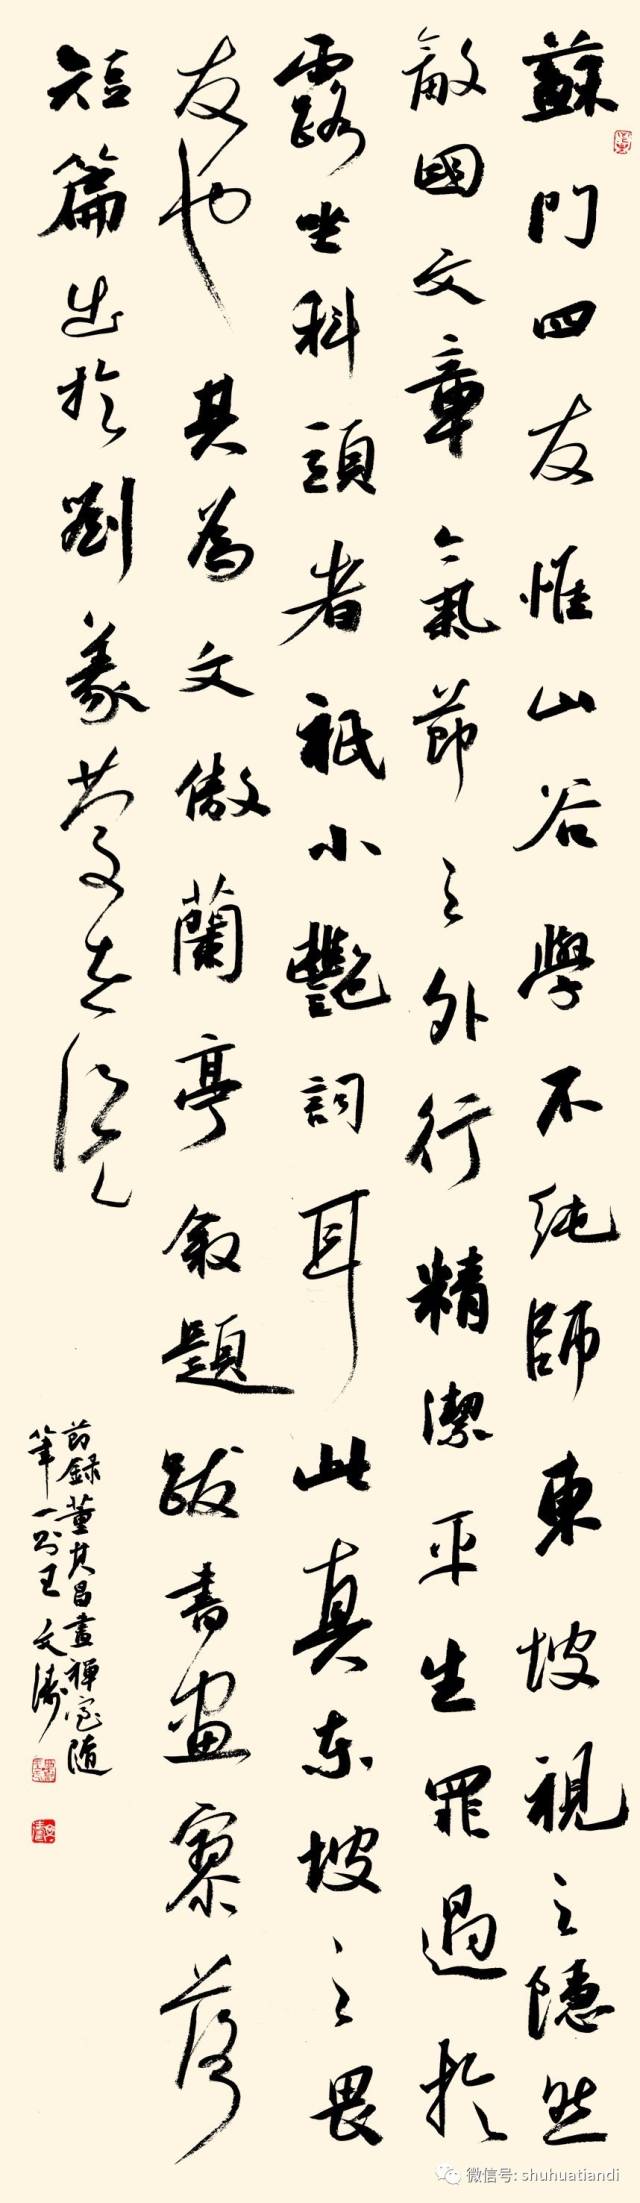 蘇門四友惟山谷學不純師東坡視之隱然
敵國文章氣節之外行精潔平生罪過於
露坐科頭者祇小艷詞耳此真東坡之畏
友也其為文傲蘭亭敘題跋書畫寥落
短篇出於劉義慶世說
節録董其昌畫禪室随
筆一則王文濤
微信号: shuhuatiandi